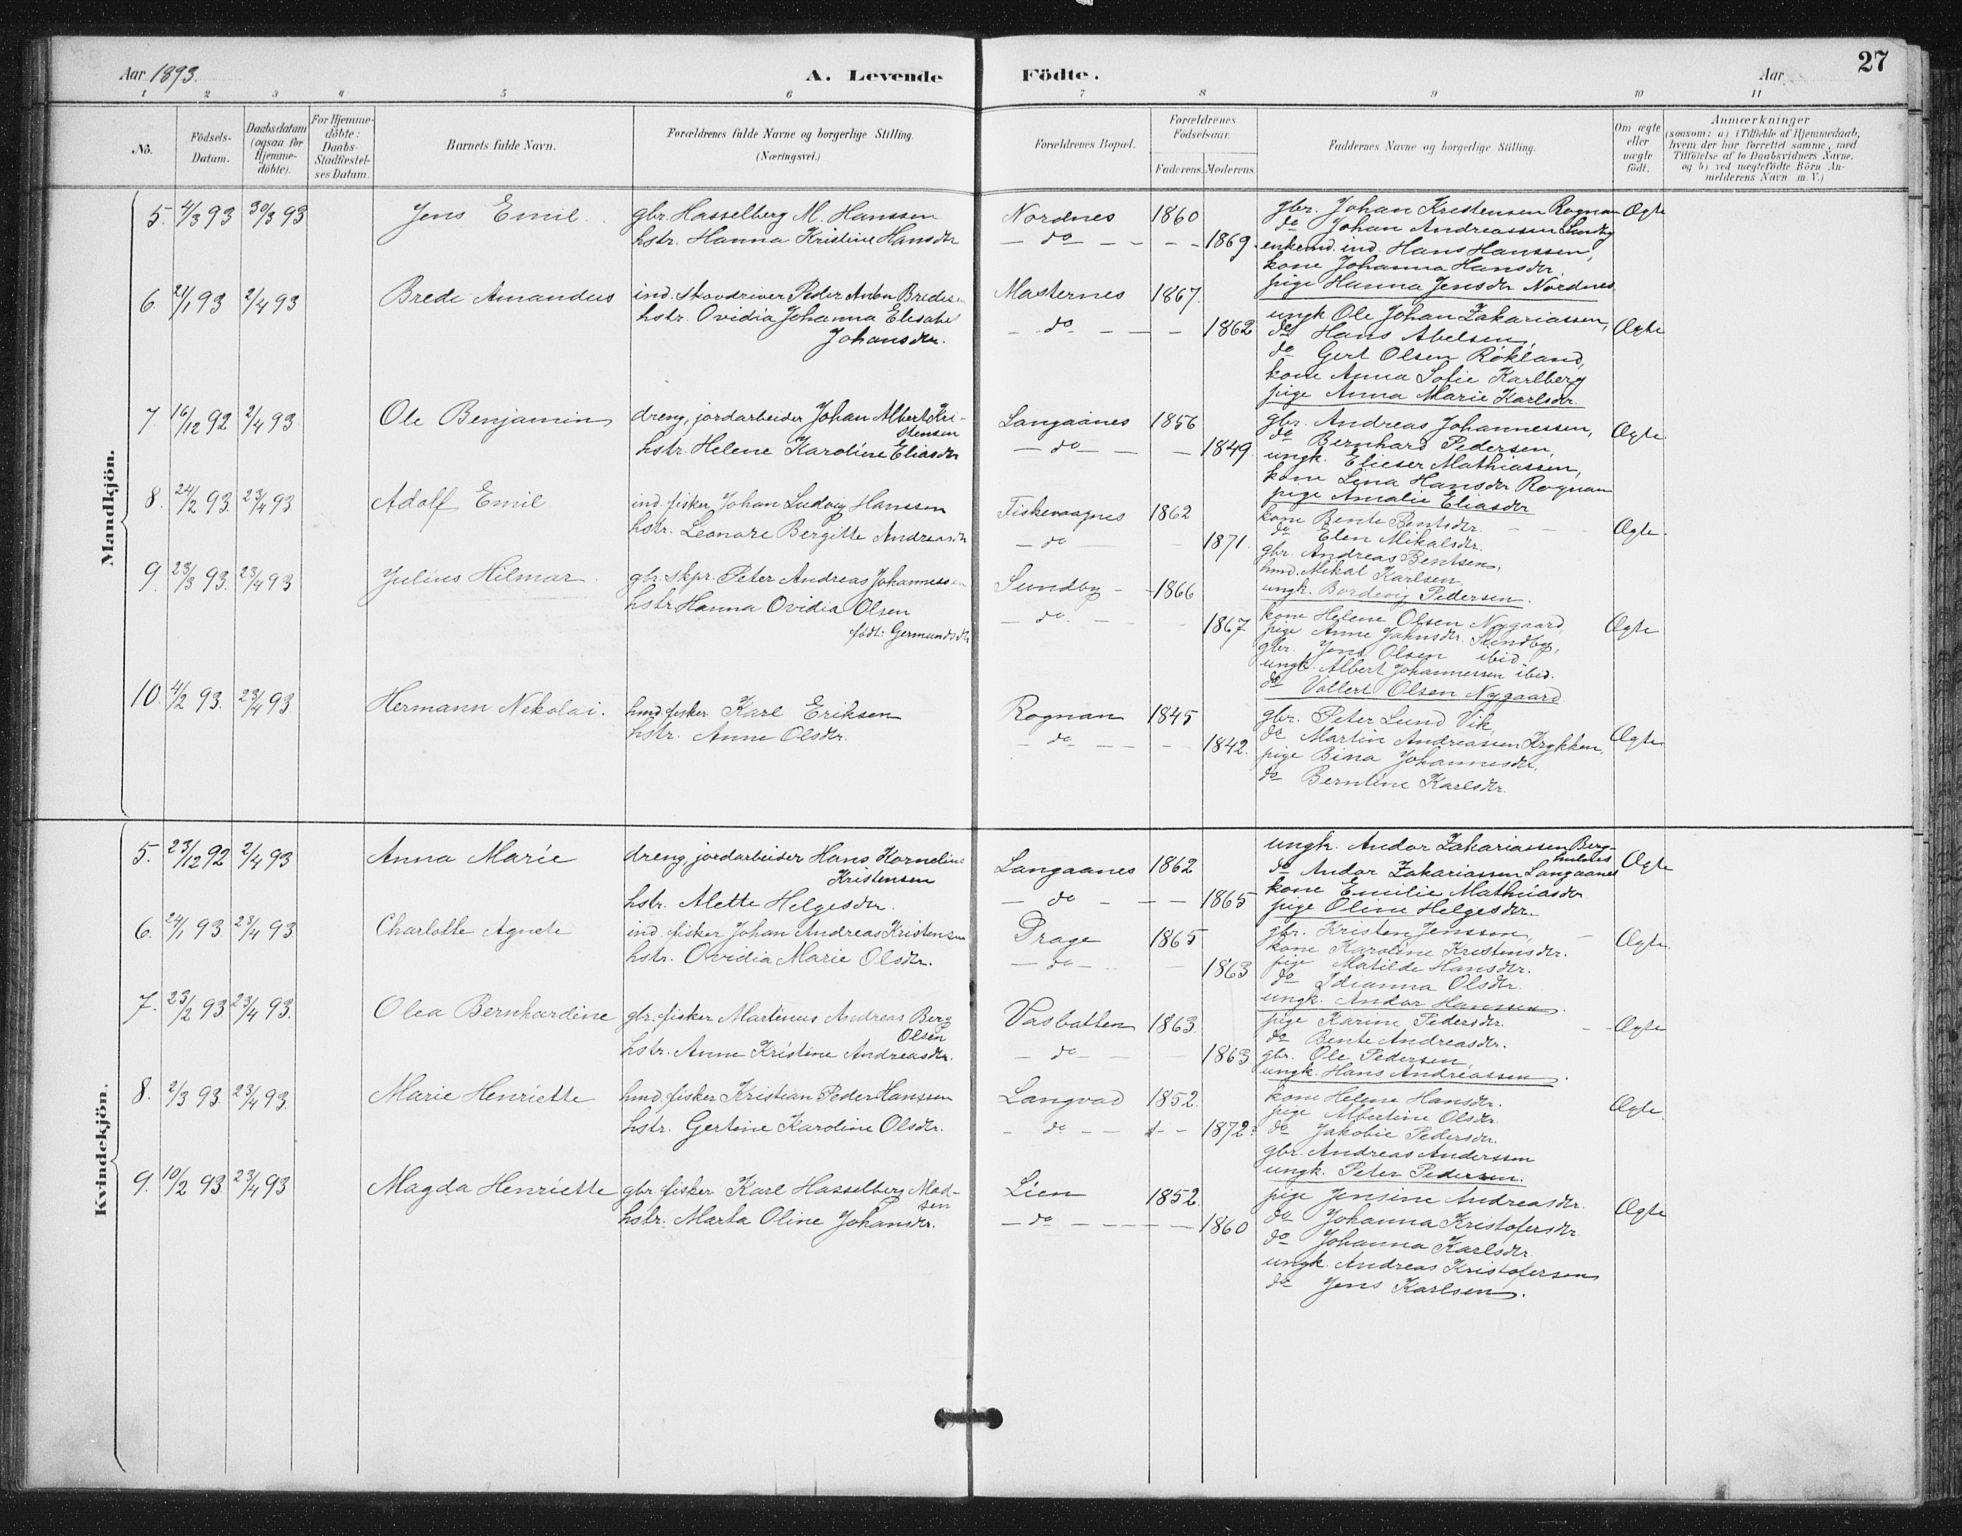 27
Aar 1893.
A. Levende Födte.
Aar
1 2 3 4 5 6 7 8 9 10 11
No.
Födsels-Datum.
Daabsdatum (ogsaa for Hjemmedöbte).
For Hjemmedöbte: Daabs-Stadfestelses Datum.
Barnets fulde Navn.
Forældrenes fulde Navne og borgerlige Stilling.
(Næringsvei.)
Forældrenes Bopæl.
Forældrenes Födselsaar.
Faderens. Moderens.
Faddernes Navne og borgerlige Stilling.
Om ægte eller uægte födt.
Anmærkninger
(saasom: a) i Tilfælde af Hjemmedaab, hvem der har forrettet samme, med Tilföielse af to Daabsvidners Navne, og b) ved uegtefödte Börn Anmelderens Navn m. V.)
Mandkjön.
5. 4/3 93 30/3 93 Jens Emil. gbr. Hasselberg M. Hanssen Nordnes 1860 Ægte
hstr. Hanna Kristine Hansdtr - do - - - 1869.
gbr. Johan Kristensen Rognan
do Johan Andreassen Sundby
enkemd. ind. Hans Hanssen,
kone Johanna Hansdtr.
pige Hanna Jensdtr Nordnes
6. 21/1 93 2/4 93 Brede Amandus ind. skovdriver Peder Anton Bredesen Masternes 1867. Ægte
hstr. Ovidia Johanna Elisabet - do - - - 1862
Johansdtr.
ungk Ole Johan Zakariassen,
do Hans Abelsen,
do Gert Olsen Rökland,
kone Anna Sofie Karlberg
pige Anna Marie Karlsdtr.
7. 16/12 92 2/4 93 Ole Benjamin dreng, jordarbeider Johan Albert Kri-
stensen Langaanes 1856 Ægte
hstr. Helene Karoline Eliasdtr - do - - - 1849.
gbr. Andreas Johannessen,
do Bernhard Pedersen,
ungk. Elieser Mathiassen,
kone Lina Hansdtr Rognan
pige Amalie Eliasdtr
8. 24/2 93. 23/4 93. Adolf Emil ind. fisker Johan Ludvig Hanssen Fiskevaagnes 1862 Ægte.
hstr. Leonore Bergitte Andreasdtr - do - 1871.
kone Bente Bentsdtr.
do Elen Mikalsdtr.
gbr. Andreas Bentsen,
hmd. Mikal Karlsen
ungk. Bordevig Pedersen.
9. 23/3 93. 23/4 93 Julius Hilmar. gbr. skpr. Peter Andreas Johannessen Sundby - 1866 Ægte
hstr Hanna Ovidia Olsen - do - - - 1867
födt: Germundsdtr
kone Helene Olsen Nygaard
pige Anne Jahnsdtr. Sundby,
gbr. Jens Olsen ibid
ungk. Albert Johannessen ibid.
do Vollert Olsen Nygaard
10. 4/2 93. 23/4 93 Hermann Nikolai. hmd. fisker Karl Eriksen Rognan 1845 Ægte
hstr. Anne Olsdtr. - do - - - 1842.
gbr. Peter Lund Vik,
do Martin Andreassen Krykken,
pige Bina Johannesdtr.
do Berntine Karlsdtr.
Kvindekjön.
5. 23/12 92 2/4 93 Anna Marie dreng, jordarbeider Hans Kornelius
Kristensen Langaanes 1862 Ægte
hstr. Alette Helgesdtr. - do - - - 1865
ungk. Andor Zakariassen Berg-
do Andor Zakariassen Langaanes
kone Emilie Mathiasdtr
pige Oline Helgesdtr.
6. 24/1 93 23/4 93. Charlotte Agnete ind. fisker Johan Andreas Kristensen Prage 1865 Ægte.
hstr. Ovidia Marie Olsdtr. - do - - 1863
gbr. Kristen Jenssen,
kone Karoline Kristensdtr.
pige Matilde Hansdtr.
do Idianna Olsdtr.
ungk. Andor Hanssen.
7. 23/2 93 23/4 93. Olea Bernhardine gbr. fisker Martinus Andreas Berg
Olsen Vasbatten 1863. Ægte
hstr. Anne Kristine Andreasdtr. - do - - - 1863
pige Karine Pedersdtr.
do Bente Andreasdtr.
gbr. Ole Pedersen,
ungk. Hans Andreassen.
8. 2/3 93. 23/4 93. Marie Henriette hmd. fisker Kristian Peder Hanssen Langvad 1852. Ægte.
hstr. Gertine Karoline Olsdtr. - do - - - 1872.
kone Helene Hansdtr.
pige Albertine Olsdtr.
do Jakobie Pedersdtr.
gbr. Andreas Anderssen
ungk. Peter Pedersen.
9. 10/2 93. 23/4 93 Magda Henriette gbr. fisker Karl Hasselberg Mad-
sen Lien 1852. Ægte
hstr. Marta Oline Johansdtr. - do - - - - 1860
pige Jensine Andreasdtr.
do Johanna Kristofersdtr
do Johanna Karlsdtr.
ungk. Andreas Kristofersen
do Jens Karlsen.